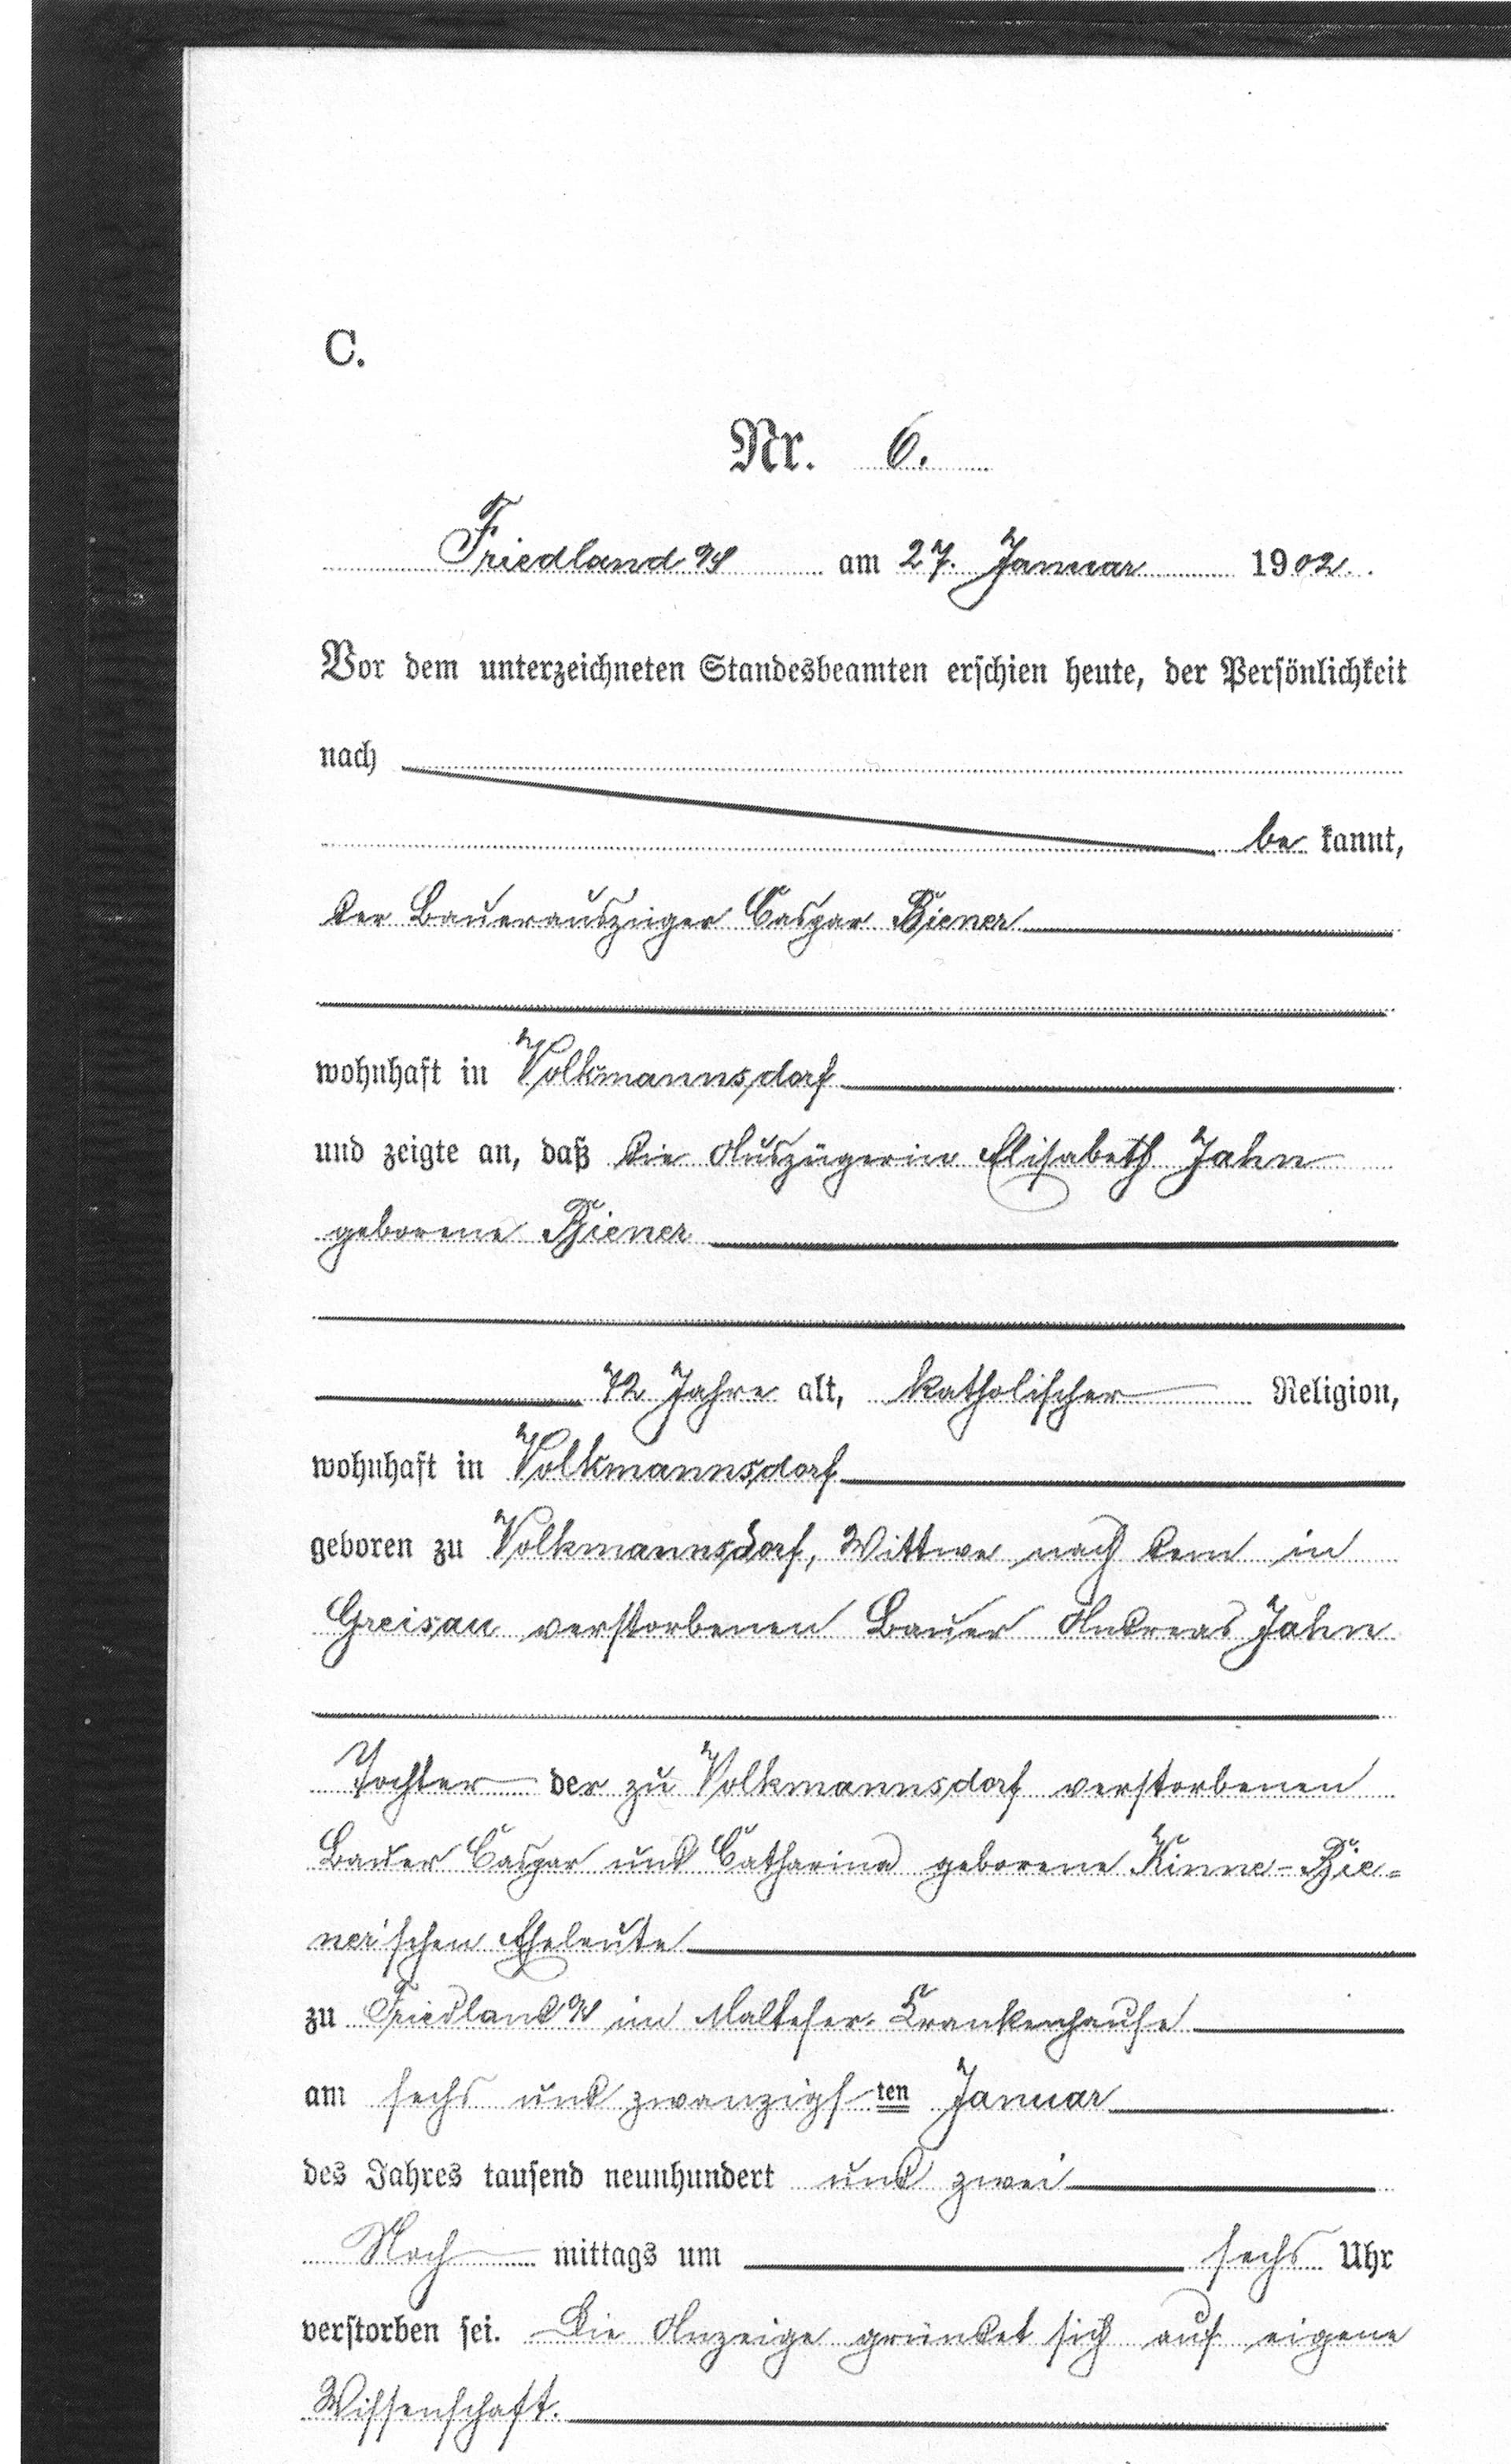 C.
Nr. 6.
Friedland O/S am 27. Januar 1902.
Vor dem unterzeichneten Standesbeamten erschien heute, der Persönlichkeit
nach
be kannt,
der Bauerauszüger Caspar Biener
wohnhaft in Volkmannsdorf
und zeigte an, daß die Auszügerin Elisabeth Jahn
geborene Biener
72 Jahre alt, katholischer Religion,
wohnhaft in Volkmannsdorf
geboren zu Volkmannsdorf, Wittwe nach dem in
Greisau verstorbenen Bauer Andreas Jahn
Tochter der zu Volkmannsdorf verstorbenen
Bauer Caspar und Catharina geborene Kinne-Bie=
ner'schen Eheleute
zu Friedland O/S im Malteser-Krankenhause
am sechs und zwanzigsten Januar
des Jahres tausend neunhundert und zwei
Nach mittags um sechs Uhr
verstorben sei. Die Anzeige gründet sich auf eigene
Wissenschaft.